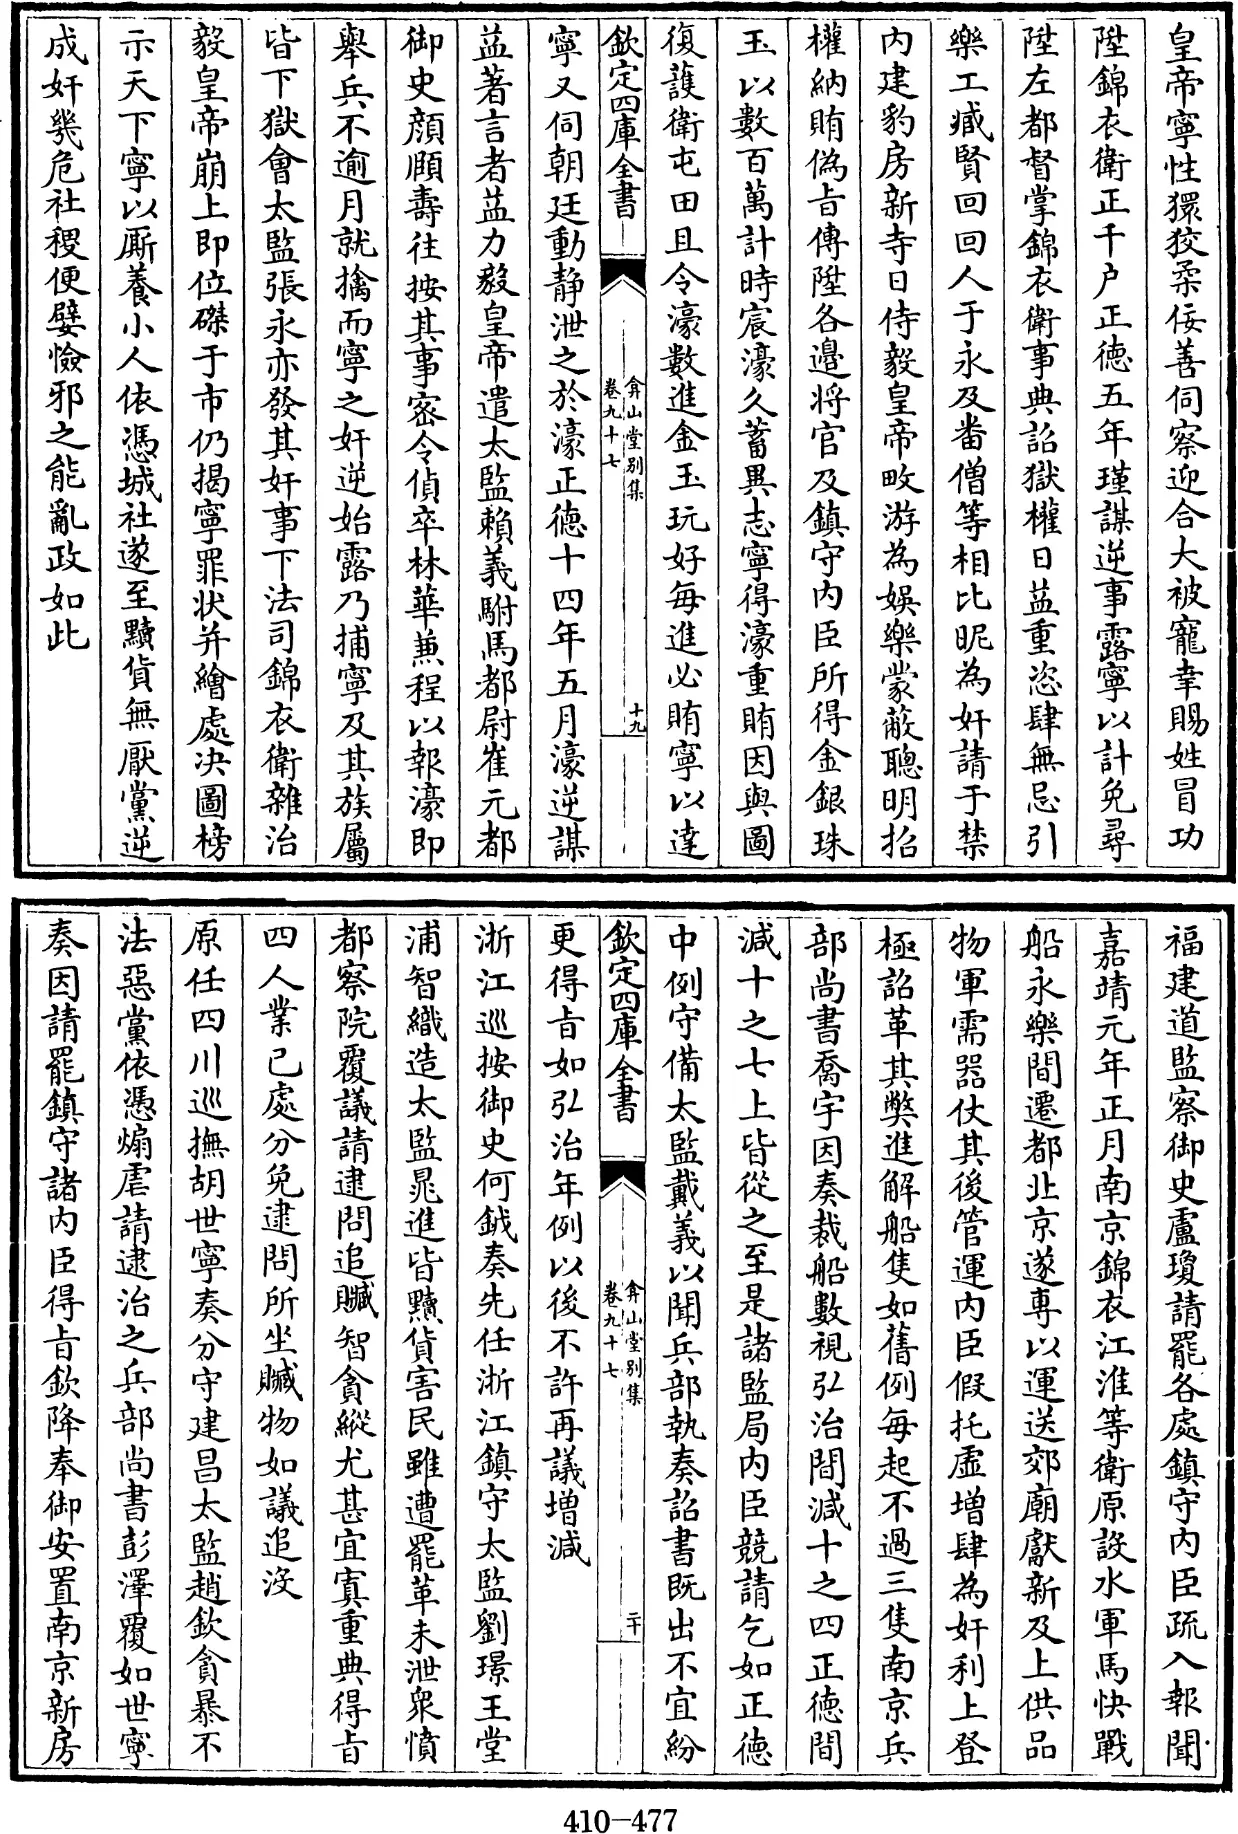 皇帝寧性獧狡柔佞善伺察迎合大被寵幸賜姓冒功
陞錦衣衛正千户正德五年瑾謀逆事露寧以計免尋
陞左都督掌錦衣衛事典詔獄權日益重恣肆無忌引
樂工臧賢回回人于永及番僧等相比昵為奸請于禁
内建豹房新寺日侍毅皇帝畋游為娛樂蒙蔽聰明招
權納賄偽旨傳陞各邊将官及鎮守内臣所得金銀珠
玉以數百萬計時宸濠久蓄異志寧得濠重賄因與圖
復護衛屯田且令濠數進金玉玩好每進必賄寧以達
欽定四庫全書
弇山堂别集
卷九十七
十九
寧又伺朝廷動静泄之於濠正德十四年五月濠逆謀
益著言者益力毅皇帝遣太監賴義駙馬都尉崔元都
御史顔頤壽往按其事宻令偵卒林華兼程以報濠即
舉兵不逾月就擒而寧之奸逆始露乃捕寧及其族屬
皆下獄會太監張永亦發其奸事下法司錦衣衛雜治
毅皇帝崩上即位磔于市仍揭寧罪状并繪處决圖榜
示天下寧以厮養小人依憑城社遂至黷貨無厭黨逆
成奸幾危社稷便嬖憸邪之能亂政如此
福建道監察御史盧瓊請罷各處鎮守内臣疏入報聞
嘉靖元年正月南京錦衣江淮等衛原設水軍馬快戰
船永樂間遷都北京遂專以運送郊廟獻新及上供品
物軍需器仗其後管運内臣假托虛增肆為奸利上登
極詔革其獘進解船隻如舊例每起不過三隻南京兵
部尚書喬宇因奏裁船數視弘治間減十之四正德間
減十之七上皆從之至是諸監局内臣競請乞如正德
中例守備太監戴義以聞兵部執奏詔書既出不宜紛
欽定四庫全書
弇山堂别集
卷九十七
二十
更得旨如弘治年例以後不許再議增減
浙江巡按御史何鉞奏先任浙江鎮守太監劉璟王堂
浦智織造太監晁進皆黷貨害民雖遭罷革未泄衆憤
都察院覆議請逮問追贓智貪縱尤甚宜寘重典得旨
四人業已處分免逮問所坐贓物如議追没
原任四川巡撫胡世寧奏分守建昌太監趙欽貪暴不
法惡黨依憑煽虐請逮治之兵部尚書彭澤覆如世寧
奏因請罷鎮守諸内臣得旨欽降奉御安置南京新房
410-477